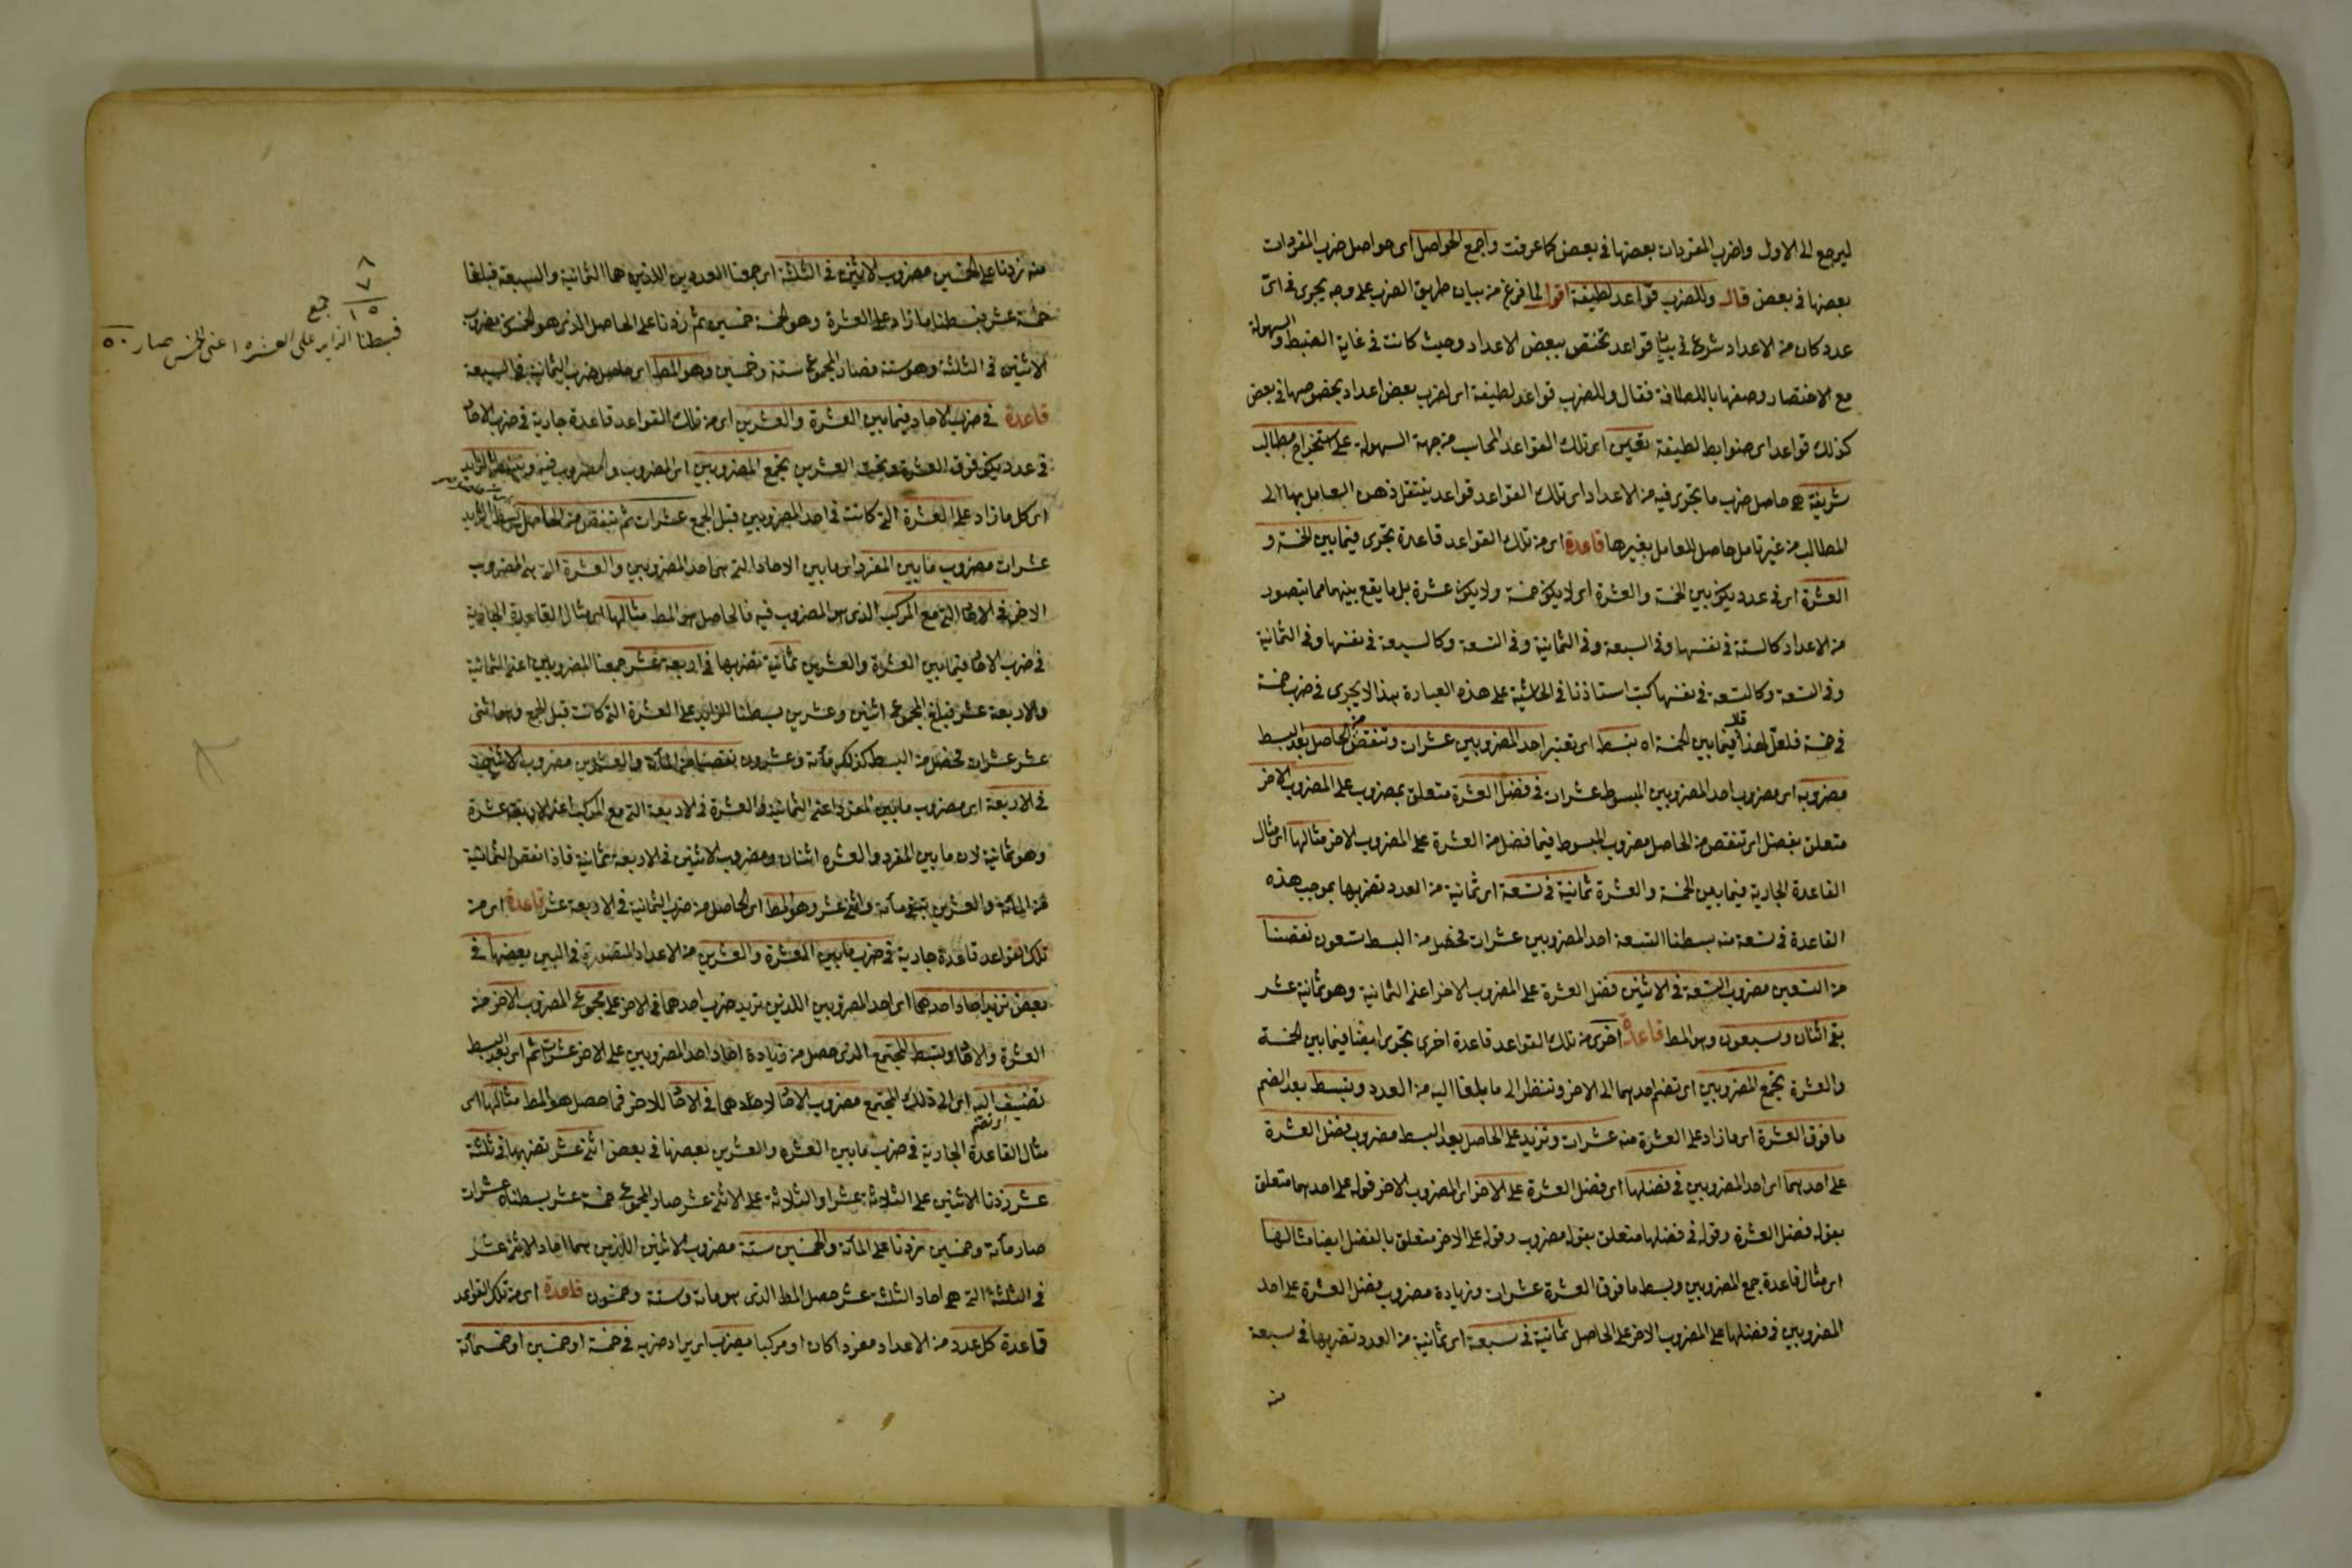 ليرجع الى الاول واضرب المفردات بعضها في بعض كما عرفت واجمع الحواصل اى حواصل ضرب المفردات
بعضها في بعض قال وللضرب قواعد لطيفة اقول لما فرغ من بيان طريق الضرب على وجه يجرى في اى
عدد كان من الاعداد شرع في بيان قواعد تختص ببعض الاعداد وحيث كانت في غاية الضبط والسهولة
مع الاختصار وصفها باللطافة فقال وللضرب قواعد لطيفة اى لضرب بعض اعداد بخصوصها في بعض
كذلك قواعد اى ضوابط لطيفة تعين اى تلك القواعد المحاسب من جهة السهولة على استخراج مطالب
شريفة هى حاصل ضرب ما تجرى فيه من الاعداد اى تلك القواعد قواعد ينتقل ذهن العامل بها الى
المطالب من غير تامل حاصل للعامل بغيرها قاعدة اى من تلك القواعد قاعدة تجرى فيما بين الخمسة و
العشرة اى في عدد يكون بين الخمسة والعشرة اى لا يكون خمسة ولا يكون عشرة بل ما يقع بينهما مما يتصور
من الاعداد كالستة في نفسها وفي السبعة وفي الثمانية وفي التسعة وكالسبعة في نفسها وفي الثمانية
وفي التسعة وكالتسعة في نفسها كتب استاذنا في الحاشية على هذه العبارة هذا لا يجرى في ضرب خمسة
في خمسة فلعل لهذا قال فيما بين الخمسة اه تبسط اى تعتبر احد المضروبين عشرات وتنقص من الحاصل بعد البسط
مضروبه اى مضروب احد المضروبين المبسوط عشرات في فضل العشرة متعلق بمضروب على المضروب الاخر
متعلق بفضل اى تنقص من الحاصل مضروب المبسوط فيما فضل من العشرة على المضروب الاخر مثالها اى مثال
القاعدة الجارية فيما بين الخمسة والعشرة ثمانية في تسعة اى ثمانية من العدد تضربها بموجب هذه
القاعدة في تسعة منه بسطنا التسعة احد المضروبين عشرات فحصل من البسط تسعون نقصنا
من التسعين مضروب التسعة في الاثنين فضل العشرة على المضروب الاخر اعنى الثمانية وهو ثمانية عشر
بقى اثنان وسبعون وهو المط قاعدة اخرى من تلك القواعد قاعدة اخرى تجرى ايضا فيما بين الخمسة
والعشرة تجمع المضروبين اى تضم احدهما الى الاخر وتنظر الى ما بلغا اليه من العدد وتبسط بعد الضم
ما فوق العشرة اى ما زاد على العشرة منه عشرات وتزيد على الحاصل بعد البسط مضروب فضل العشرة
على احدهما اى احد المضروبين في فضلها اى فضل العشرة على الاخر اى المضروب الاخر قوله على احدهما متعلق
بقوله فضل العشرة وقوله في فضلها متعلق بقوله مضروب وقوله على الاخر متعلق بالفضل ايضا مثالها
اى مثال قاعدة جمع المضروبين وبسط ما فوق العشرة عشرات وزيادة مضروب فضل العشرة على احد
المضروبين في فضلها على المضروب الاخر على الحاصل ثمانية في سبعة اى ثمانية من العدد تضربها في سبعة
منه
منه زدنا على الخمسين مضروب الاثنين في الثلثة اى جمعنا العددين اللذين هما الثمانية والسبعة فبلغا
خمسة عشر فبسطنا ما زاد على العشرة وهو الخمسة خمسين ثم زدنا على الحاصل الذى هو الخمسون مضروب
الاثنين في الثلثة وهو ستة فصار المجموع ستة وخمسين وهو المط اى حاصل ضرب الثمانية في السبعة
قاعدة في ضرب الاحاد فيما بين العشرة والعشرين اى من تلك القواعد قاعدة جارية في ضرب الاحاد
في عدد يكون فوق العشرة وتحت العشرين تجمع المضروبين اى المضروب والمضروب فيه وتبسط الزايد
اى كل ما زاد على العشرة التى كانت في احد المضروبين قبل الجمع عشرات ثم تنقص من الحاصل بسط الزايد
عشرات مضروب ما بين المفرد اى ما بين الاحاد التى هى احد المضروبين والعشرة التى هى المضروب
الاخر في الاحاد التى مع المركب الذى هو المضروب فيه فالحاصل هو المط مثالها اى مثال القاعدة الجارية
في ضرب الاحاد فيما بين العشرة والعشرين ثمانية تضربها في اربعة عشر جمعنا المضروبين اعنى الثمانية
والاربعة عشر فبلغ المجموع اثنين وعشرين بسطنا الزايد على العشرة التى كانت قبل الجمع وهو اثنى
عشر عشرات فحصل من البسط كذلك مائة وعشرون نقصنا من المائة والعشرين مضروب الاثنين
في الاربعة اى مضروب ما بين المفرد اعنى الثمانية والعشرة في الاربعة التى مع المركب اعنى الاربعة عشرة
وهو ثمانية لان ما بين المفرد والعشرة اثنان ومضروب الاثنين في الاربعة ثمانية فاذا نقص الثمانية
من المائة والعشرين يبقى مائة واثنى عشر وهو المط اى الحاصل من ضرب الثمانية في الاربعة عشر قاعدة اى من
تلك القواعد قاعدة جارية في ضرب ما بين العشرة والعشرين من الاعداد المتصورة في البين بعضها في
بعض تزيد احاد احدهما اى احد المضروبين اللذين تريد ضرب احدهما في الاخر على مجموع المضروب الاخر من
العشرة والاحاد وتبسط المجتمع الذى حصل من زيادة احاد احد المضروبين على الاخر عشرات ثم اى بعد البسط
تضيف اليه اى الى ذلك المجتمع مضروب الاحاد لاحدهما في الاحاد للاخر فما حصل هو المط مثالها اى
اى تضم
مثال القاعدة الجارية في ضرب ما بين العشرة والعشرين بعضها في بعض اثنى عشر تضربها في ثلثة
عشر زدنا الاثنين على الثلاثة عشر او الثلاثة على الاثنى عشر صار المجموع خمسة عشر بسطناه عشرات
صار مائة وخمسين زدنا على المائة والخمسين ستة مضروب الاثنين اللذين هما احاد الاثنى عشر
في الثلثة التى هى احاد الثلثة عشر حصل المط الذى هو مائة وستة وخمسون قاعدة اى من تلك القواعد
قاعدة كل عدد من الاعداد مفردا كان او مركبا يضرب اى يراد ضربه في خمسة او خمسين او خمسمائة
٨
٧
١٥ جمع
فبسطنا الزايد على العشره اعنى الخمس صار ٥٠